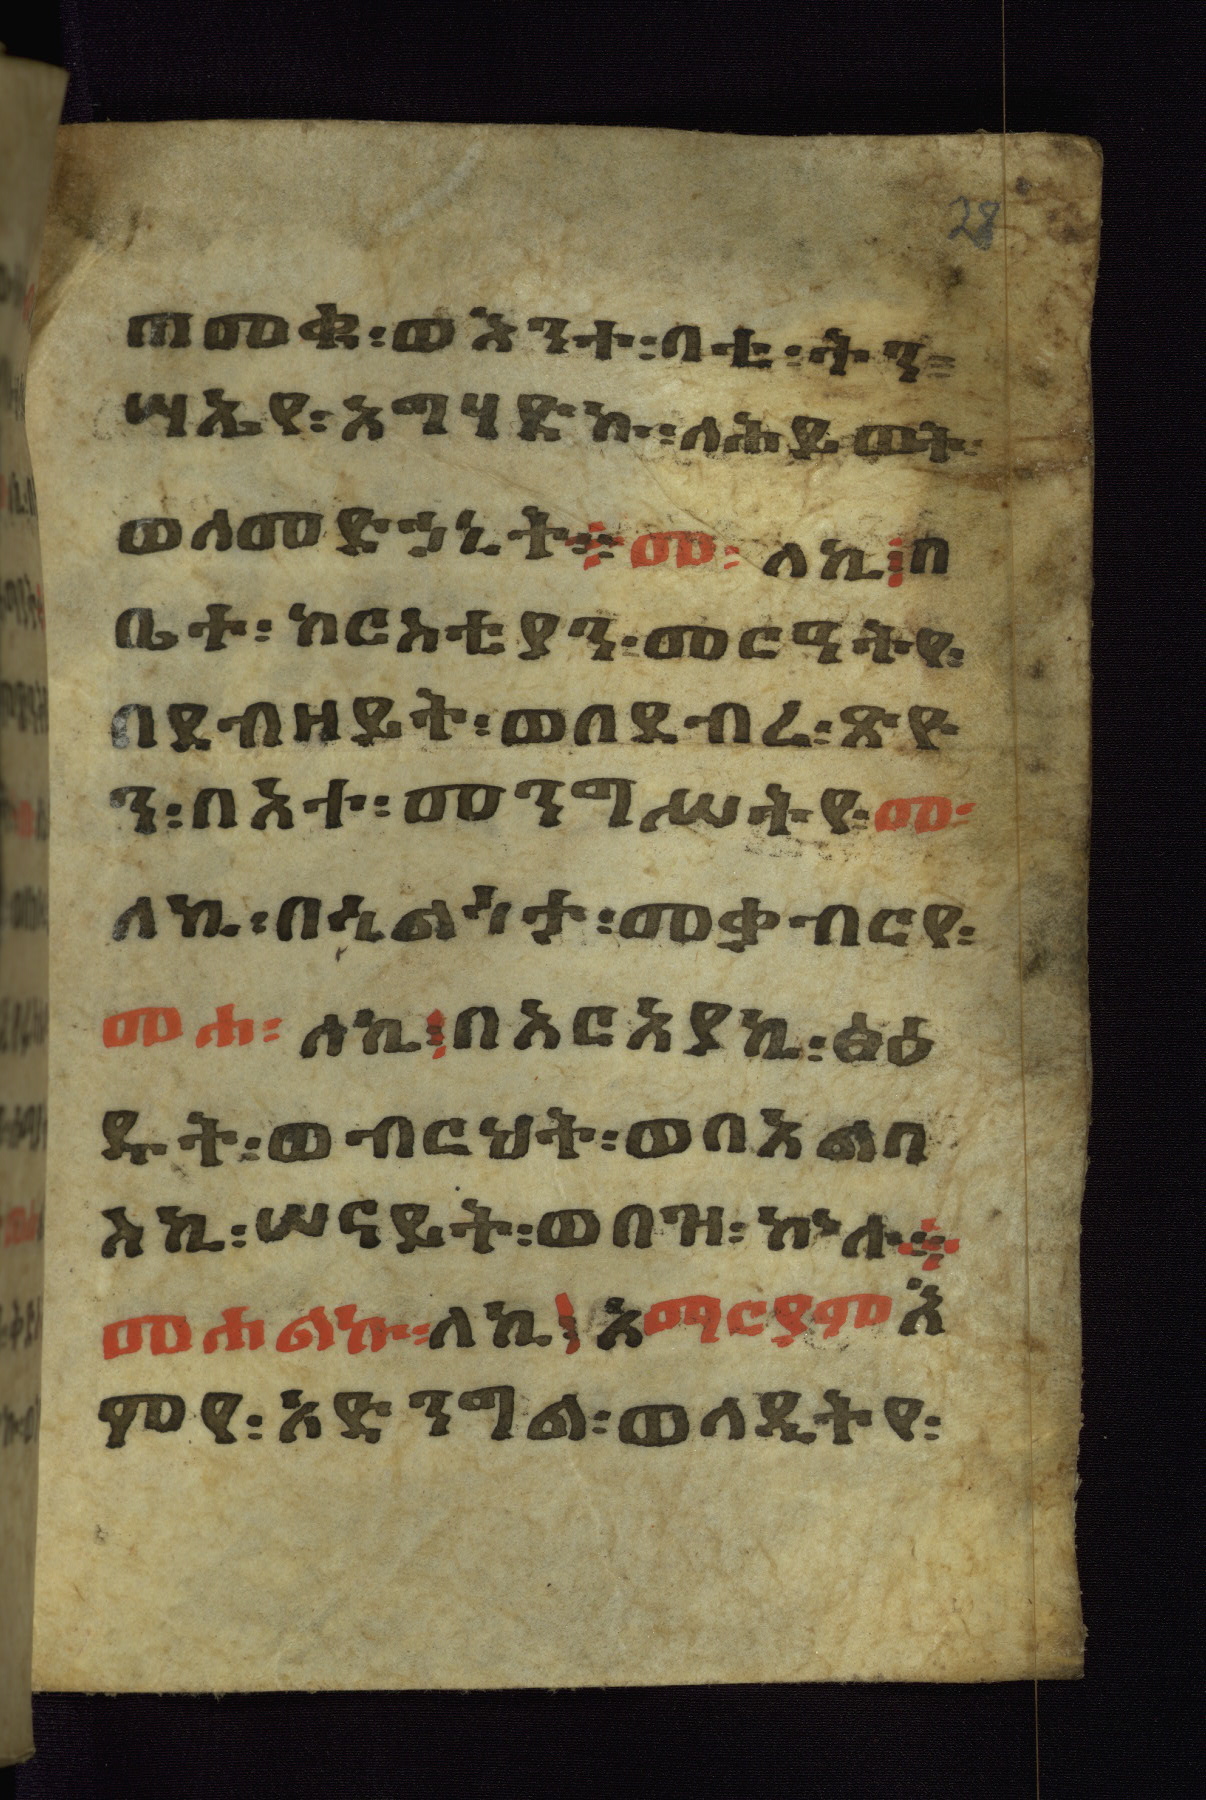 28
ጠመቁ፡ወእንተ፡ባቲ፡ትን፡
ሣኤየ፡አማሃድኩ፡ለሕይወት፡
ወለመድኃኒት፨መ፡ለኪ፤በ
ቤተ፡ክርስቲያን፡መርዓትየ፡
በደብዘይት፡ወበደብረ፡ጽዮ
ን፡በእተ፡መንግሥትየ፡መ፡
ለኪ፡በሲልንታ፡መቃብርየ፡
መሐ፡ለኪ፤በአርአያኪ፡ፅዕ
ዱት፡ወብርህት፡ወበአልባ
ስኪ፡ሠናይት፡ወበዝ፡ኵሉ፨
መሐልኩ፡ለኪ፤እማርያምእ
ምየ፡እድንግል፡ወላዲትየ፡